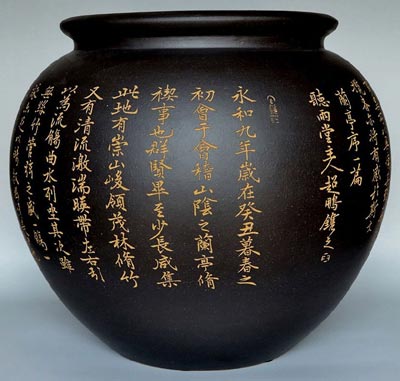 將有感於斯文
蘭亭序一篇
聽雨堂主人
永和九年歲在癸丑暮春之
初會于會稽山陰之蘭亭脩
禊事也群賢畢至少長咸集
此地有崇山峻領茂林脩竹
又有清流激湍暎帶左右引
以為流觴曲水列坐其次雖
無絲竹管弦之盛一觴一